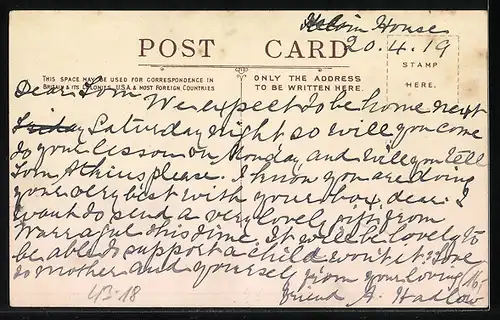 Kelvin House
20.4.19
POST CARD
THIS SPACE MAY BE USED FOR CORRESPONDENCE IN
BRITAIN & ITS COLONIES, U.S.A. & MOST FOREIGN COUNTRIES
ONLY THE ADDRESS
TO BE WRITTEN HERE.
STAMP
HERE.
Dear Tom We expect to be home next
Friday Saturday night so will you come
to your lesson on Monday and will you tell
Tom Atkins please. I know you are doing
your very best with your box, dear. I
want to send a very lovely gift from
Warragul this time. It will be lovely to
be able to support a child won't it? Love
to mother and yourself from your loving
friend A. Hadlow
43-18